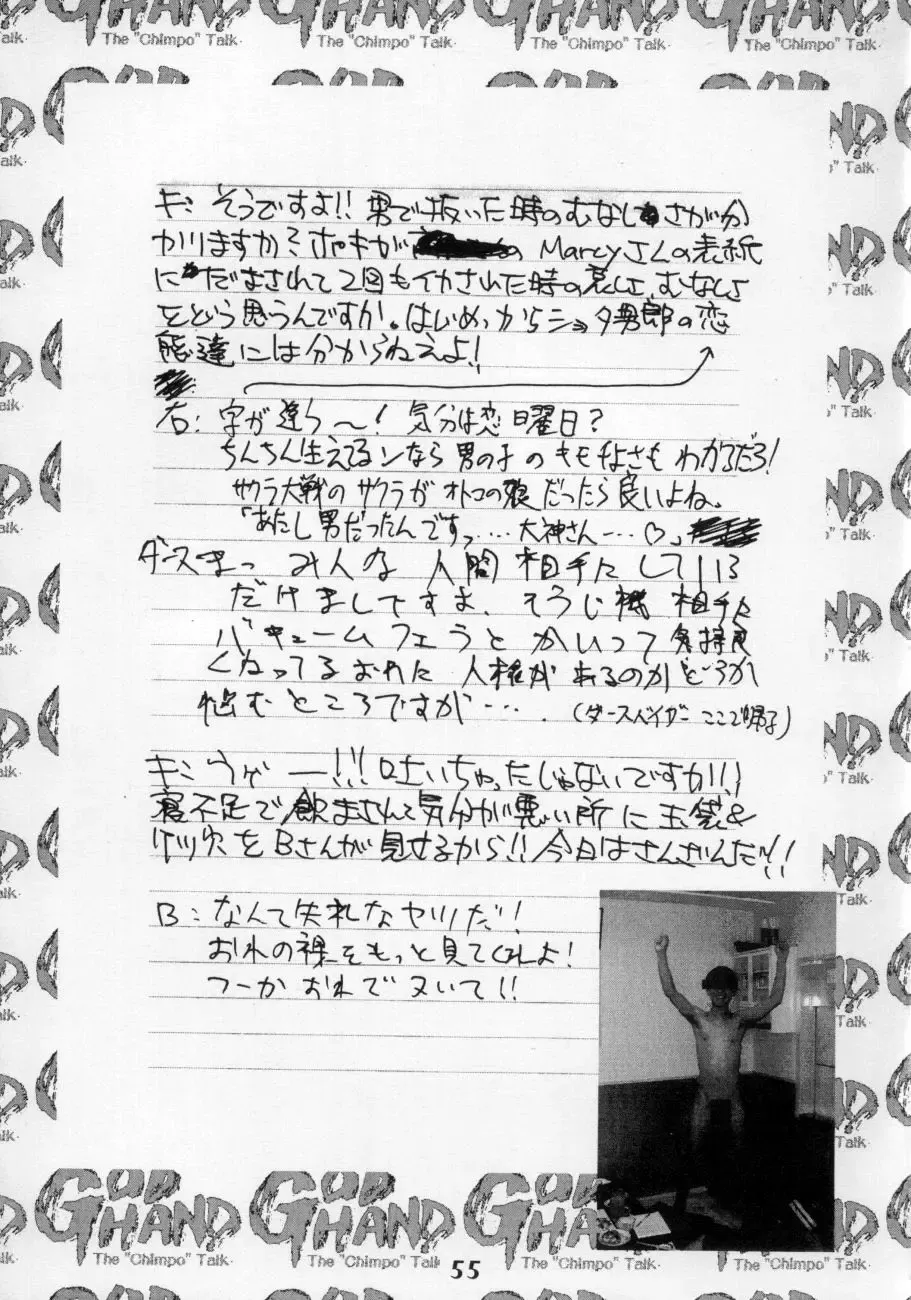 GOD HAND
The "Chimpo" Talk.
キ: そうですよ!! 男で抜いた時のむなしさが分
かりますか? ボキが の Marcyさんの表紙
に だまされて2回もイカされた時の哀しさ、むなしさ
をどう思うんですか。はじめっからショタ野郎の恋
態達には分からねえよ!
右: 字が違う〜! 気分は恋日曜日?
ちんちん生えてるンなら男の子のキモチよさもわかるだろ!
サクラ大戦のサクラがオトコの娘だったら良いよね。
「あたし男だったんですっ……大神さん…… ♡」
ダース: まっ みんな 人間相手にして
だけましですよ、そうじ機相手に
バキュームフェラとかいって気持良
くなってるおれに 人権があるのかどうか
悩むところですが……. (ダースベイダー ここで帰る)
キ: うげー!!! 吐いちゃったじゃないですか!!
寝不足で飲まされて気分が悪い所に玉袋&
ケツ穴をBさんが見せるから!! 今日はさんざんだ!!
B: なんて失礼なヤツだ!
おれの裸をもっと見てくれよ!
つーかおれでヌいて!!
GOD HAND
The "Chimpo" Talk.
55